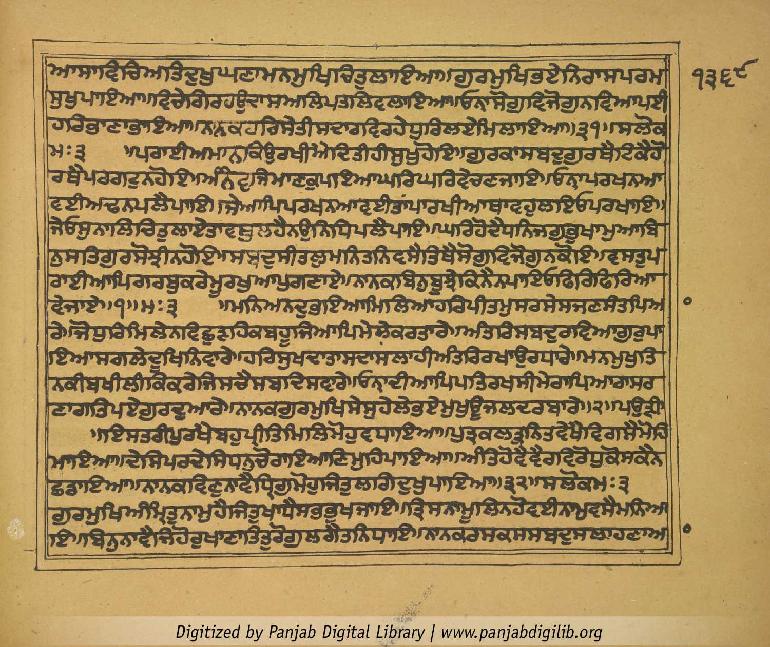 ਆਸਾਵਿਚਿਅਤਿਦੁਖੁਘਣਾਮਨਮੁਖਿਚਿਤੁਲਾਇਆ॥ਗੁਰਮੁਖਿਭਏਨਿਰਾਸਪਰਮ
੧੩੬੯
ਸੁਖੁਪਾਇਆ॥ਵਿਚੇਗਿਰਹਉਦਾਸਅਲਿਪਤਲਿਵਲਾਇਆ॥ਓਨਾਸੋਗੁਵਿਜੋਗੁਨਵਿਆਪਈ
ਹਰਿਭਾਣਾਭਾਇਆ॥ਨਾਨਕਹਰਿਸੇਤੀਸਦਾਰਵਿਰਹੇਧੁਰਿਲਏਮਿਲਾਇਆ॥੩੧॥ਸਲੋਕ
ਮਃ੩ ॥ਪਰਾਈਅਮਾਣਕਿਉਰਖੀਐਦਿਤੀਹੀਸੁਖੁਹੋਇ॥ਗੁਰਕਾਸਬਦੁਗੁਰਥੈਟਿਕੈਹੋ
ਰਥੈਪਰਗਟੁਨਹੋਇ॥ਅੰਨ੍ਹੇਵਸਿਮਾਣਕੁਪਇਆਘਰਿਘਰਿਵੇਚਣਜਾਇ॥ਓਨਾਪਰਖਨਆ
ਵਈਅਢੁਨਪਲੈਪਾਇ॥ਜੇਆਪਿਪਰਖਨਆਵਈਤਾਂਪਾਰਖੀਆਥਾਵਹੁਲਇਓਪਰਖਾਇ॥
ਜੇਓਸੁਨਾਲਿਚਿਤੁਲਾਏਤਾਵਥੁਲਹੈਨਉਨਿਧਿਪਲੈਪਾਇ॥ਘਰਿਹੋਦੈਧਨਿਜਗੁਭੁਖਾਮੁਆਬਿ
ਨੁਸਤਿਗੁਰਸੋਝੀਨਹੋਇ॥ਸਬਦੁਸੀਤਲੁਮਨਿਤਨਿਵਸੈਤਿਥੈਸੋਗੁਵਿਜੋਗੁਨਕੋਇ॥ਵਸਤੁਪ
ਰਾਈਆਪਿਗਰਬੁਕਰੇਮੂਰਖੁਆਪੁਗਣਾਏ॥ਨਾਨਕਬਿਨੁਬੂਝੇਕਿਨੈਨਪਾਇਓਫਿਰਿਫਿਰਿਆ
ਵੈਜਾਏ॥੧॥ਮਃ੩ ॥ਮਨਿਅਨਦੁਭਇਆਮਿਲਿਆਹਰਿਪ੍ਰੀਤਮੁਸਰਸੇਸਜਣਸੰਤਪਿਆ
ਰੇ॥ਜੋਧੁਰਿਮਿਲੇਨਵਿਛੁੜਹਿਕਬਹੂਜਿਆਪਿਮੇਲੇਕਰਤਾਰੇ॥ਅੰਤਰਿਸਬਦੁਰਵਿਆਗੁਰੁਪਾ
ਇਆਸਗਲੇਦੂਖਨਿਵਾਰੇ॥ਹਰਿਸੁਖਦਾਤਾਸਦਾਸਲਾਹੀਅੰਤਰਿਰਖਾਂਉਰਧਾਰੇ॥ਮਨਮੁਖੁਤਿ
ਨਕੀਬਖੀਲੀਕਿਕਰੇਜਿਸਚੈਸਬਦਿਸਵਾਰੇ॥ਓਨਾਦੀਆਪਿਪਤਿਰਖਸੀਮੇਰਾਪਿਆਰਾਸਰ
ਣਾਗਤਿਪਏਗੁਰਦੁਆਰੇ॥ਨਾਨਕਗੁਰਮੁਖਿਸੇਸੁਹੇਲੇਭਏਮੁਖਊਜਲਦਰਬਾਰੇ॥੨॥ਪਉੜੀ
॥ਇਸਤਰੀਪੁਰਖੈਬਹੁਪ੍ਰੀਤਿਮਿਲਿਮੋਹੁਵਧਾਇਆ॥ਪੁਤ੍ਰੁਕਲਤ੍ਰੁਨਿਤਵੇਖੈਵਿਗਸੈਮੋਹਿ
ਮਾਇਆ॥ਦੇਸਿਪਰਦੇਸਿਧਨੁਚੋਰਾਇਆਣਿਮੁਹਿਪਾਇਆ॥ਅੰਤਿਹੋਵੈਵੈਰਵਿਰੋਧੁਕੋਸਕੈਨ
ਛਡਾਇਆ॥ਨਾਨਕਵਿਣੁਨਾਵੈਧ੍ਰਿਗੁਮੋਹੁਜਿਤੁਲਗਿਦੁਖੁਪਾਇਆ॥੩੨॥ਸਲੋਕਮਃ੩
ਗੁਰਮੁਖਿਅੰਮ੍ਰਿਤੁਨਾਮੁਹੈਜਿਤੁਖਾਧੈਸਭਭੁਖਜਾਇ॥ਤ੍ਰਿਸਨਾਮੂਲਿਨਹੋਵਈਨਾਮੁਵਸੈਮਨਿਆ
ਇ॥ਬਿਨੁਨਾਵੈਜਿਹੋਰੁਖਾਣਾਤਿਤੁਰੋਗੁਲਗੈਤਨਿਧਾਇ॥ਨਾਨਕਰਸਕਸਸਬਦੁਸਲਾਹਣਾਆ
Digitized by Panjab Digital Library | www.panjabdigilib.org